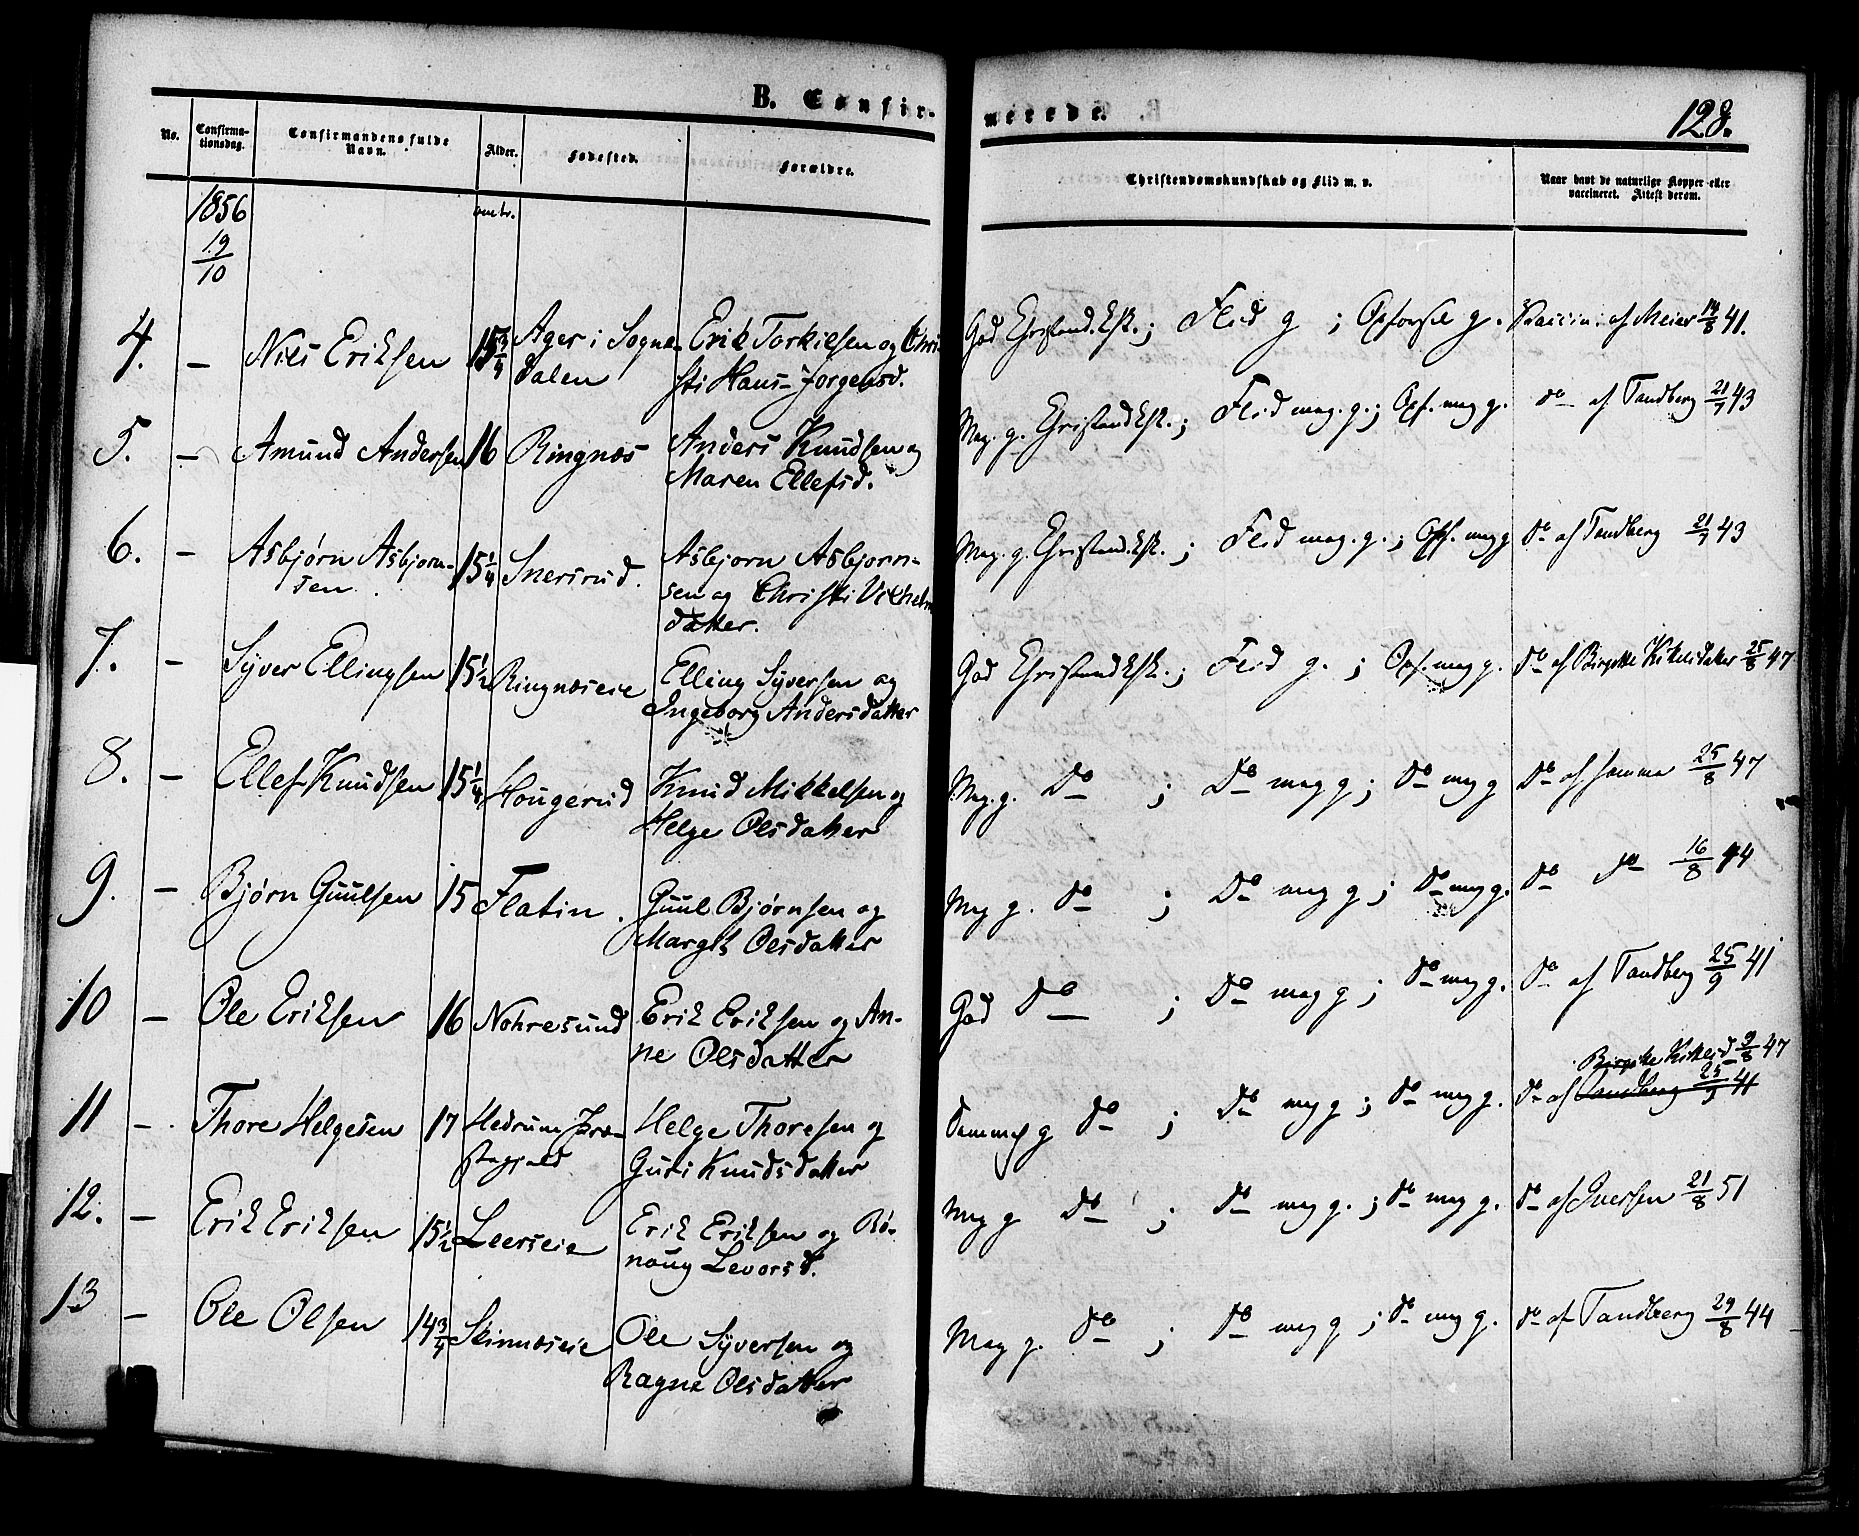 B. Confir-
merede.
128.
No.
Confirma-
tionsdag.
Confirmandens fulde
Navn.
Alder.
Fødested.
Forældre.
Christendomskundskab og Flid m. v.
Naar havt de naturlige Kopper eller
vaccineret. Attest derom.
1856
19/10
omtr.
4. — Niels Eriksen 15 3/4 Ager i Sogne- Erik Torkilsen og Chri-
dalen sti Hans-Jorgensd.
God Christend.ksk.; Flid g ; Opførsel g. Vaccin. af Meier 14/8 41.
5. — Amund Andersen 16 Ringnæs Anders Knudsen og
Maren Ellefsd.
Meg. g. Christendksk.; Flid meg. g.; Opf. meg g. do af Tandberg 21/7 43
6. — Asbjørn Asbjørn- 15 1/4 Snersrud. Asbjorn Asbjorn-
sen sen og Christi Vilhelm
datter.
Meg. g. Christend.ksk. ; Flid meg. g. ; Opf. meg g do af Tandberg 21/7 43
7. — Syver Ellingsen 15 1/2 Ringnæseie Elling Syversen og
Ingeborg Andersdatter
God Christendksk.; Flid g. ; Opf. meg g. do af Birgitte Kikelsdatter 25/8 47
8. — Ellef Knudsen 15 1/4 Hougerud Knud Mikkelsen og
Helge Olsdatter
Meg. g. Do ; Do meg g ; do meg g Do af samme 25/8 47
9. — Bjørn Guulsen 15 Flatin. Guul Bjørnsen og
Margit Olsdatter
Meg g. do ; Do meg g ; do meg g. do do 16/8 44
10 — Ole Eriksen 16 Nohresund Erik Eriksen og An-
ne Olsdatter
God Do ; Do meg g ; do meg g. do af Tandberg 25/9 41
Birgitte Kikelsd 9/8 47
11 — Thore Helgesen 17 Hedrum Præ- Helge Thoresen og
stegjeld Guri Knudsdatter
Temmel g do ; do meg g ; do meg g. do af Tandberg 25/9 41
12. — Erik Eriksen 15 1/2 Leerseie Erik Eriksen og Rø-
noug Levorsd.
Meg g Do ; do meg g. ; do meg g. do af Iversen 21/8 51
13 — Ole Olsen 14 3/4 Skinnæseie Ole Syversen og
Ragne Olsdatter
Meg g. do ; do meg g ; do meg g. do af Tandberg 29/8 44